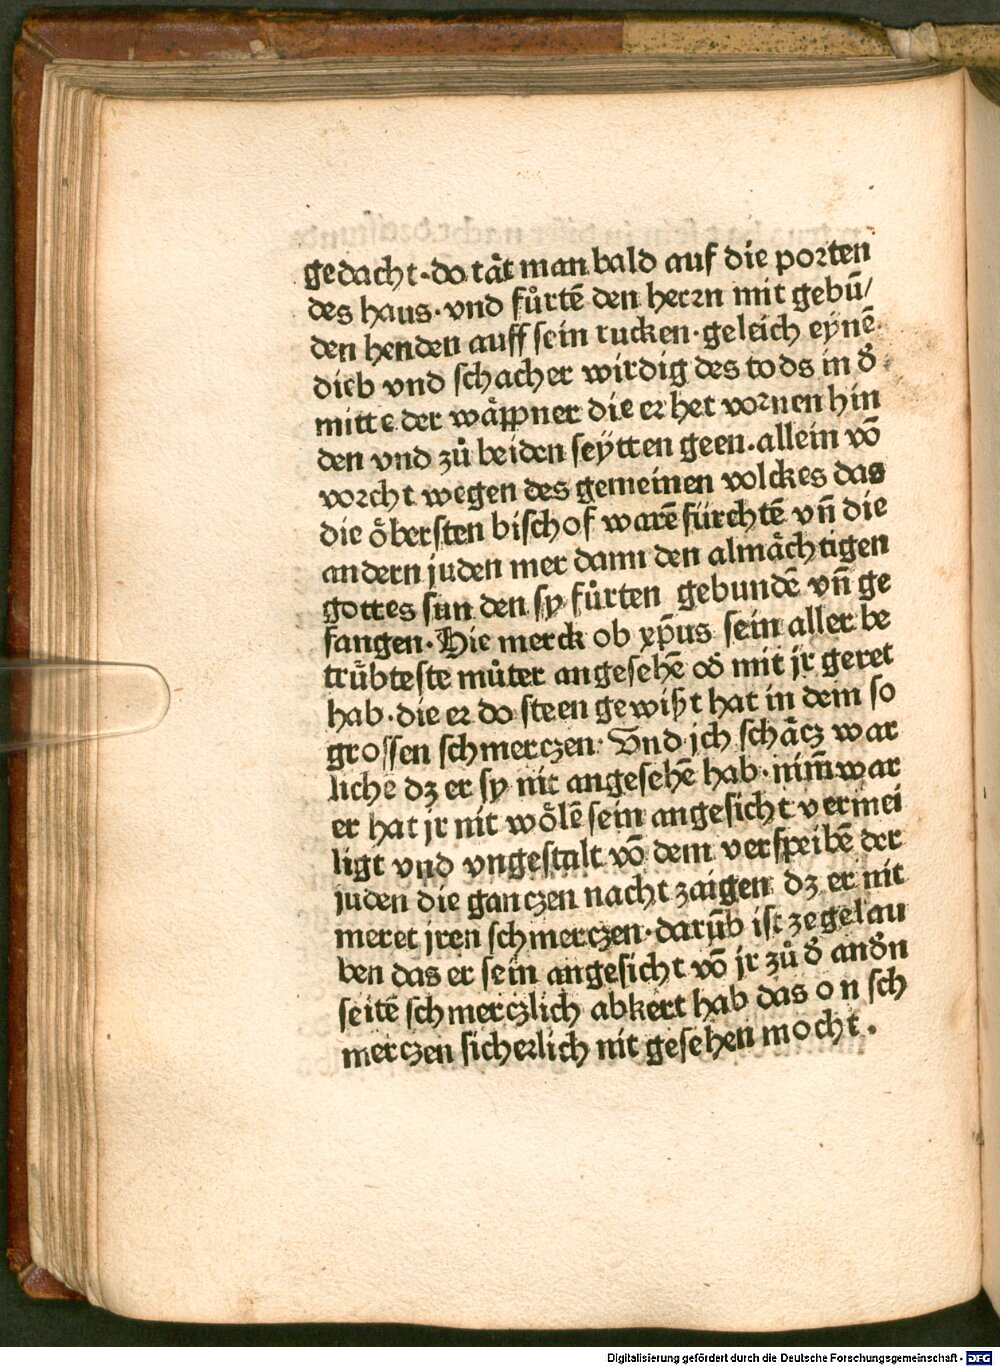 gedacht·do tåt man bald auf die porten
des haus·vnd fůrtē den herrn mit gebū/
den henden auff sein rucken·geleich eynē
dieb vnd schacher wirdig des tods in d̕
mitte der wåppner die er het vornen hin
den vnd zů beiden seytten geen.allein vō
vorcht wegen des gemeinen volckes das
die öbersten bischof warē fürchtē vn̄ die
andern juden mer dann den almåchtigen
gottes sun den sy fůrten gebundē vn̄ ge
fangen·Hie merck ob xp̄us sein aller be
trůbteste můter angesehē od̕ mit jr geret
hab·die er do steen gewißt hat in dem so
grossen schmerczen·Vnd jch schåcz war
lichē dz er sy nit angesehē hab·nim̄ war
er hat jr nit wölē sein angesicht vermei
ligt vnd vngestalt vō dem verspeibē der
juden die ganczen nacht zaigen dz er nit
meret jren schmerczen·darūb ist ze gelau
ben das er sein angesicht vō jr zů d̕ and̕n
seitē schmerczlich abkert hab das on sch
merczen sicherlich nit gesehen mocht.
Digitalisierung gefördert durch die Deutsche Forschungsgemeinschaft - DFG